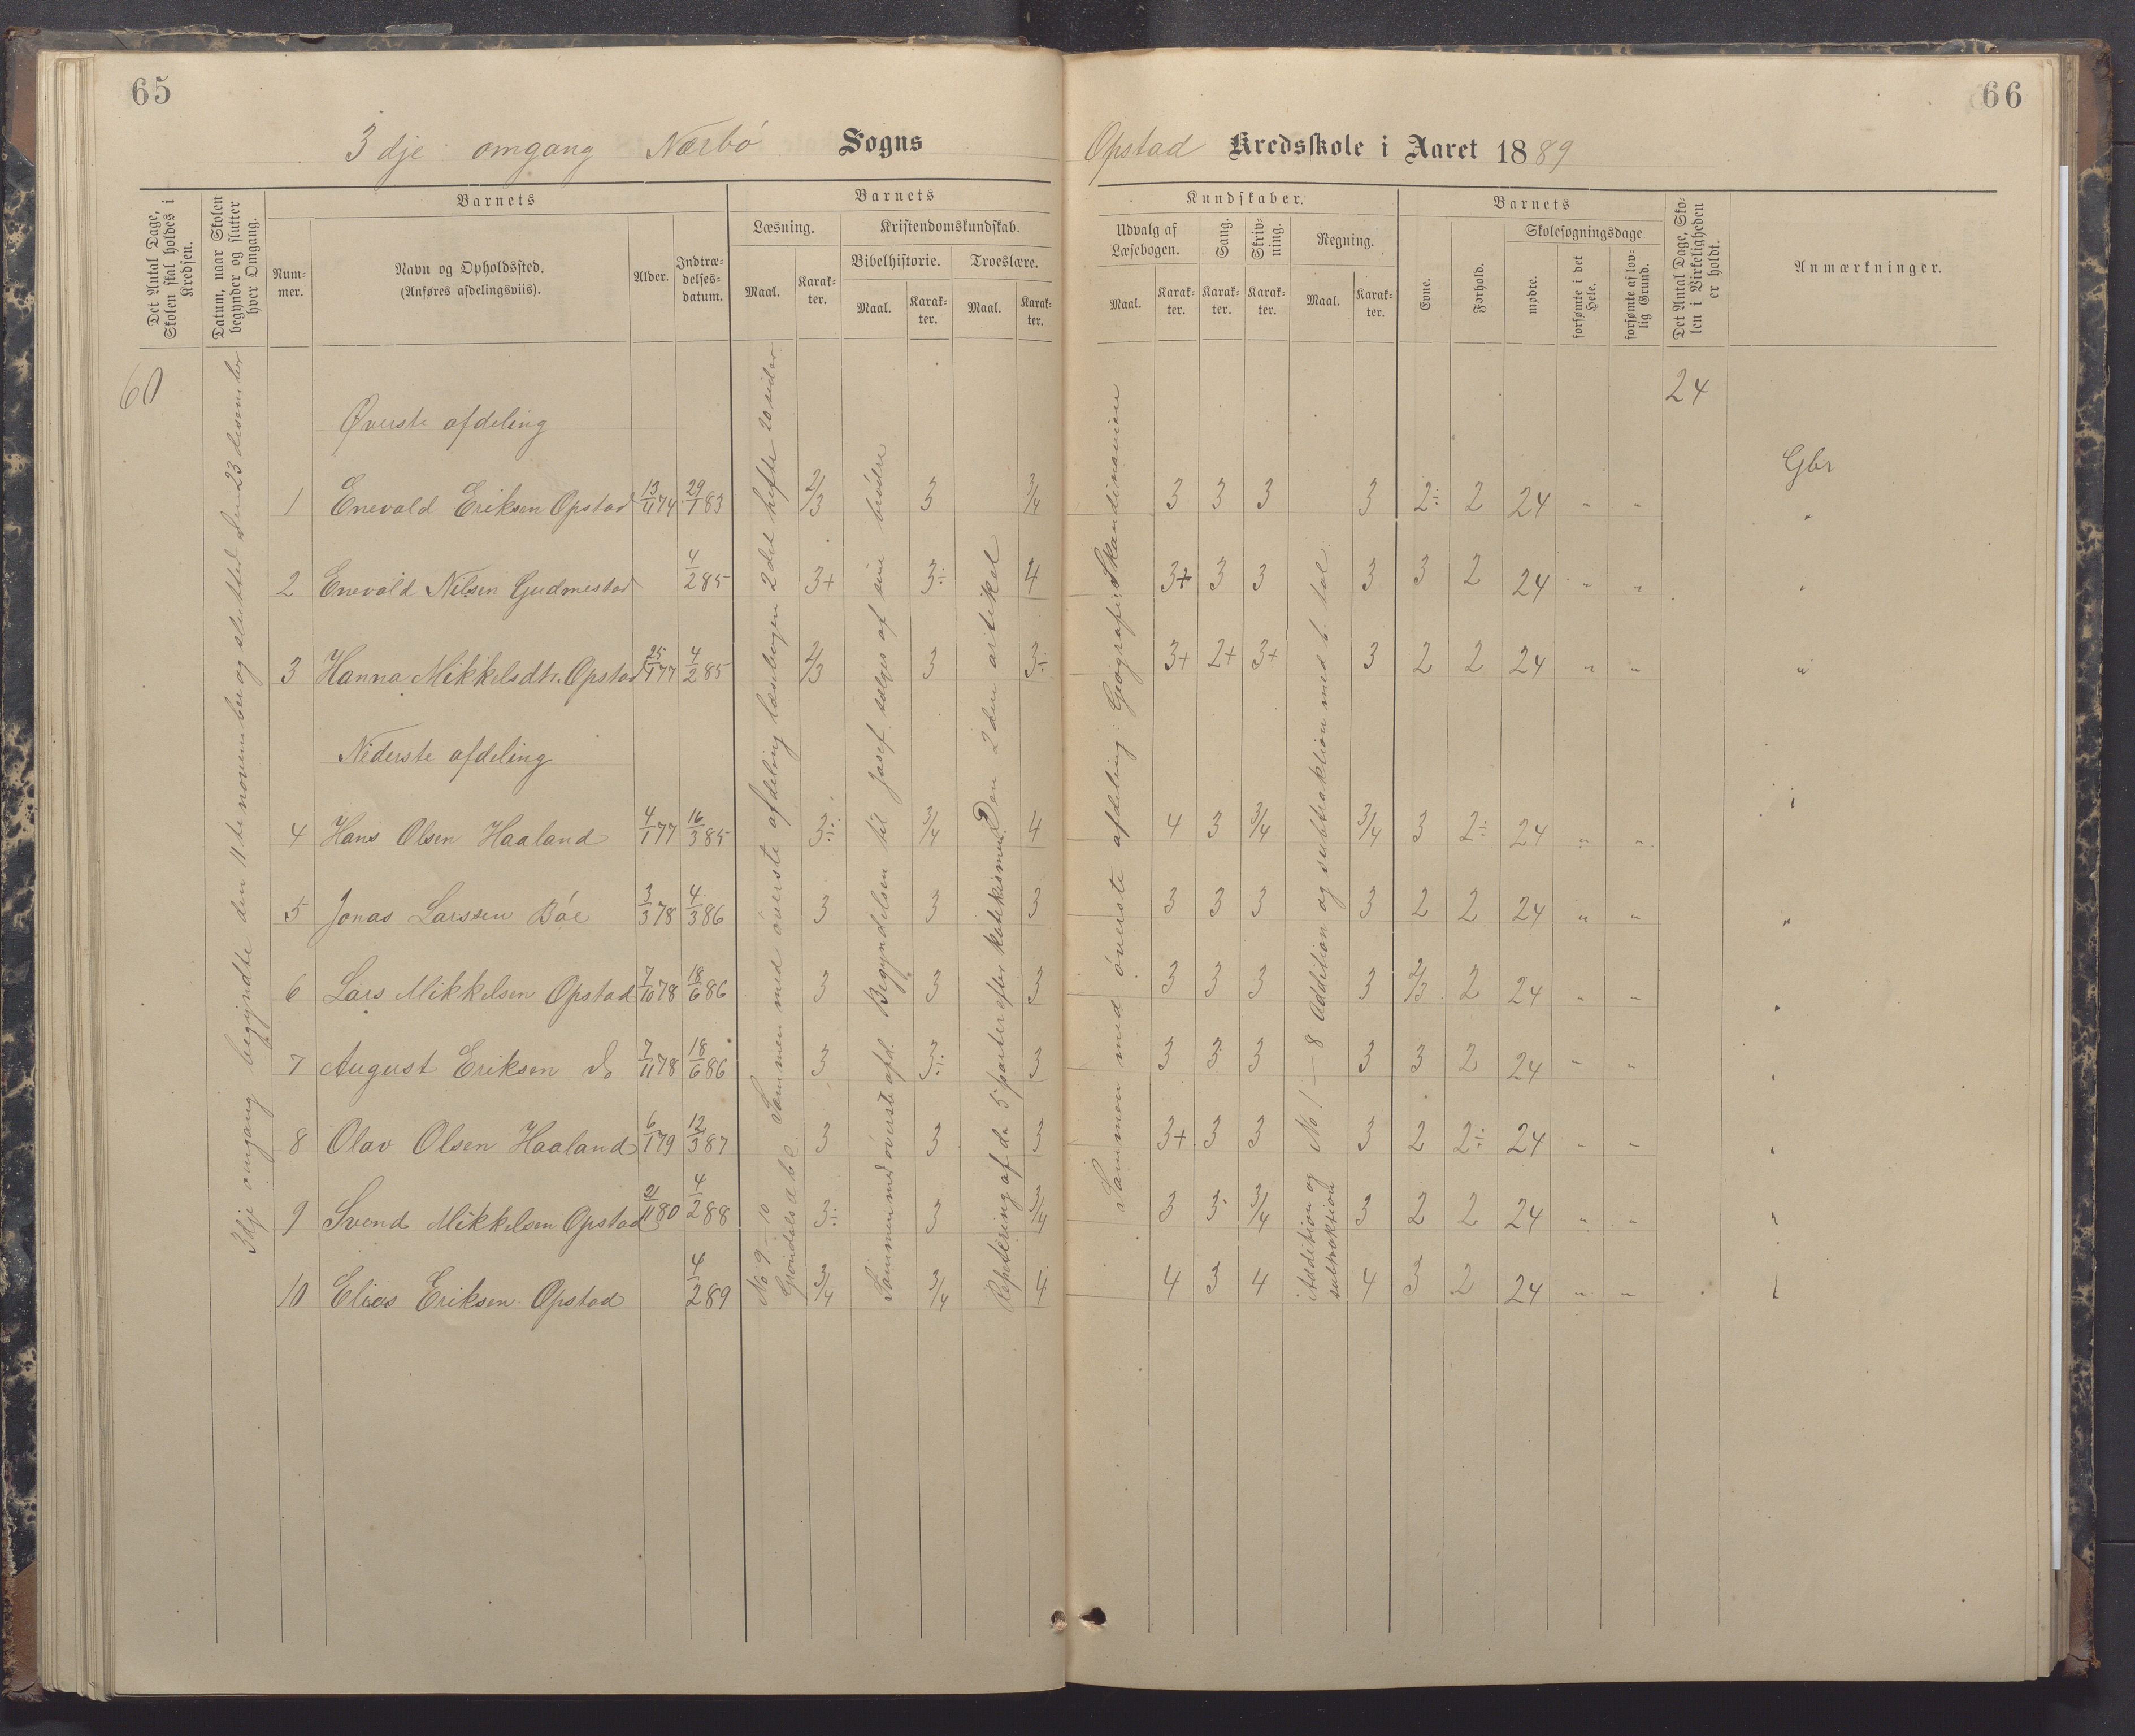 65
66
3dje omgang Nærbø Sogns
Opstad Kredsskole i Aaret 1889
Det Antal Dage, Skolen skal holdes i Kredsen.
Datum, naar Skolen begynder og slutter hver Omgang.
Barnets
Num-mer.
Navn og Opholdssted.
(Anføres afdelingsviis).
Alder.
Indtræ-delses-datum.
Barnets
Læsning.
Maal.
Karak-ter.
Kristendomskundskab.
Bibelhistorie.
Maal.
Karak-ter.
Troeslære.
Maal.
Karak-ter.
Kundskaber.
Udvalg af Læsebogen.
Maal.
Karak-ter.
Sang.
Karak-ter.
Skriv-ning.
Karak-ter.
Regning.
Maal.
Karak-ter.
Barnets
Evne.
Forhold.
Skolesøgningsdage
mødte.
forsømte i det Hele.
forsømte af lov-lig Grund.
Det Antal Dage, Sko-len i Virkeligheden er holdt.
Anmærkninger.
60
24
3dje omgang begyndte den 11te november og sluttede den 23 desember
Øverste afdeling
Gbr
1 Enevald Eriksen Opstad 13/11 74 29/1 83 2/3 3 3/4 3 3 3 3 2÷ 2 24 " " "
2 Enevald Nelsen Gudmestad 4/2 85 3+ 3÷ 4 3+ 3 3 3 3 2 24 " " "
3 Hanna Mikkelsdtr. Opstad 25/1 77 4/2 85 2/3 3 3÷ 3+ 2+ 3+ 3 2 2 24 " " "
Nederste afdeling
4 Hans Olsen Haaland 4/1 77 16/3 85 3÷ 3/4 4 4 3 3/4 3/4 3 2÷ 24 " "
5 Jonas Larssen Bøe 3/3 78 4/3 86 3 3 3 3 3 3 3 2 2 24 " " "
6 Lars Mikkelsen Opstad 7/10 78 18/6 86 3 3 3 3 3 3 3 2/3 2 24 " " "
7 August Eriksen do 7/11 78 18/6 86 3 3÷ 3 3 3 3 3 3 2 24 " " "
8 Olav Olsen Haaland 6/1 79 12/3 87 3 3 3 3+ 3 3 3 2 2÷ 24 " " "
9 Svend Mikkelsen Opstad 2/11 80 4/2 88 3÷ 3 3/4 3 3 3/4 3 2 2 24 " " "
10 Elias Eriksen Opstad 4/2 89 3/4 3/4 4 4 3 4 4 3 2 24 " "
Sammen med øverste afdeling læsebogen 2det hefte 20 sider
No 9 – 10
Grøndals abc
Sammen med øverste afd. Begyndelsen til Josef sælges af sine brødre
Repetering af de 5 parter efter katekismen. Den 2den artikel
Sammen med øverste afdeling. Geografi: Skandinavien
No 1 – 8 Addition og subtraktion med b. tal
Addition og
subtraktion